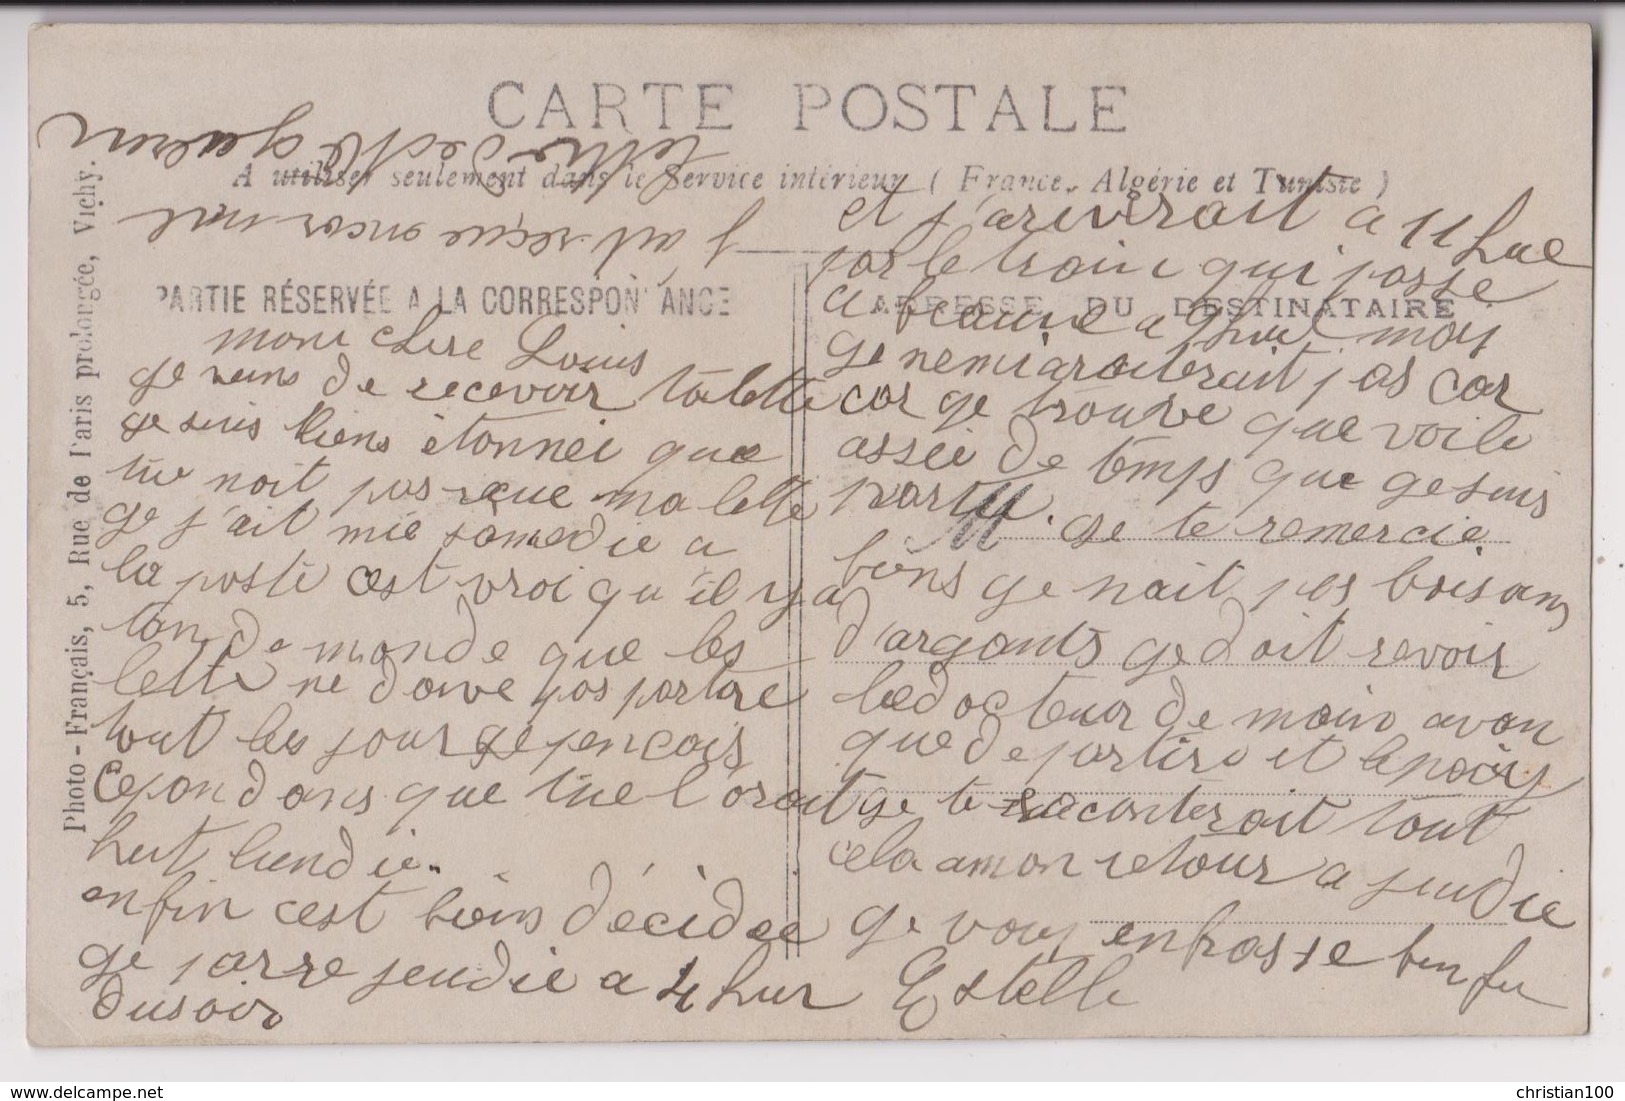 CARTE POSTALE
A utiliser seulement dans le Service intérieur ( France, Algérie et Tunisie )
PARTIE RÉSERVÉE A LA CORRESPONDANCE
ADRESSE DU DESTINATAIRE
Photo-Français, 5, Rue de Paris prolongée, Vichy.
mon chere Louis
ge viens de recevoir ta lette
ge suis biens étonnéi que
tue noit pas reçue ma lette
ge j'ait mie samedie a
la poste cest vroi qu'il y a
tan de monde que les
lette ne doive pas partire
tout les jour ge pencais
cepondans que tue l'orait
hut lundie.
enfin cest biens décidee
ge parre jeudie a 4 hur
du soir
et j'arivrait a 11 hue
par le train qui passe
a beaune a 9 hue moi
ge nemi aroiterait pas car
car ge trouve que voile
assei de temps que ge suis
partie. ge te remercie
biens ge nait pas boisans
d'argants ge doit revoir
le docteur de main avan
que de partire et apaiy
ge te raconterait tout
cela a mon retour a jeudie
ge vouy enbrasse ben fu
Estelle
j'ait reçue encor une
lettre de Me guerin
christian100